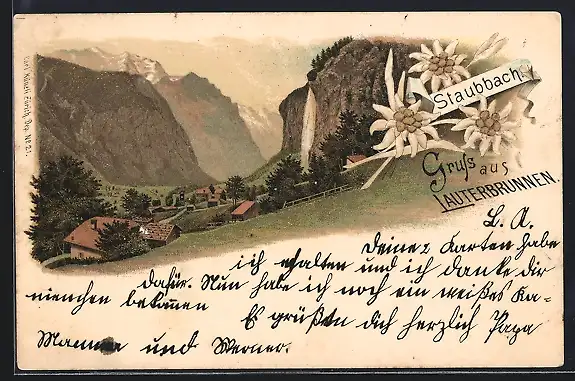 Carl Künzli, Zürich, Dep. No. 21.
Staubbach.
Gruss aus
LAUTERBRUNNEN.
L. A.
Deine 2 Karten habe
ich erhalten und ich danke dir
dafür. Nun habe ich noch ein weißes Ka-
nienchen bekommen
Es grüßen dich herzlich Papa
Mamma und Werner.